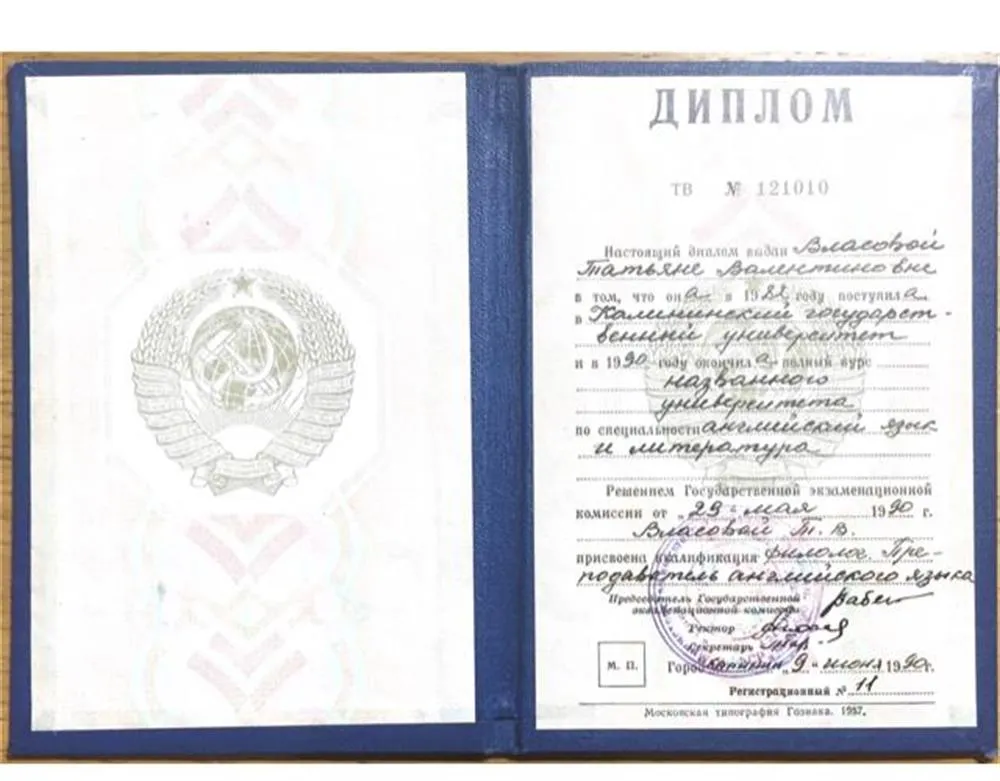 ДИПЛОМ
ТВ № 121010
Настоящий диплом выдан Власовой
Татьяне Валентиновне
в том, что она в 19 году поступила
в Калининский государст-
венный университет
и в 1990 году окончила полный курс
названного
университета
по специальности английский язык
и литература
Решением Государственной экзаменационной
комиссии от „29“ мая 1990 г.
Власовой Т. В.
присвоена квалификация филолог. Пре-
подаватель английского языка
Председатель Государственной
экзаменационной комиссии
Ректор
Секретарь
М. П.
Город Калинин „9“ июня 1990г.
Регистрационный № 11
Московская типография Гознака. 1987.